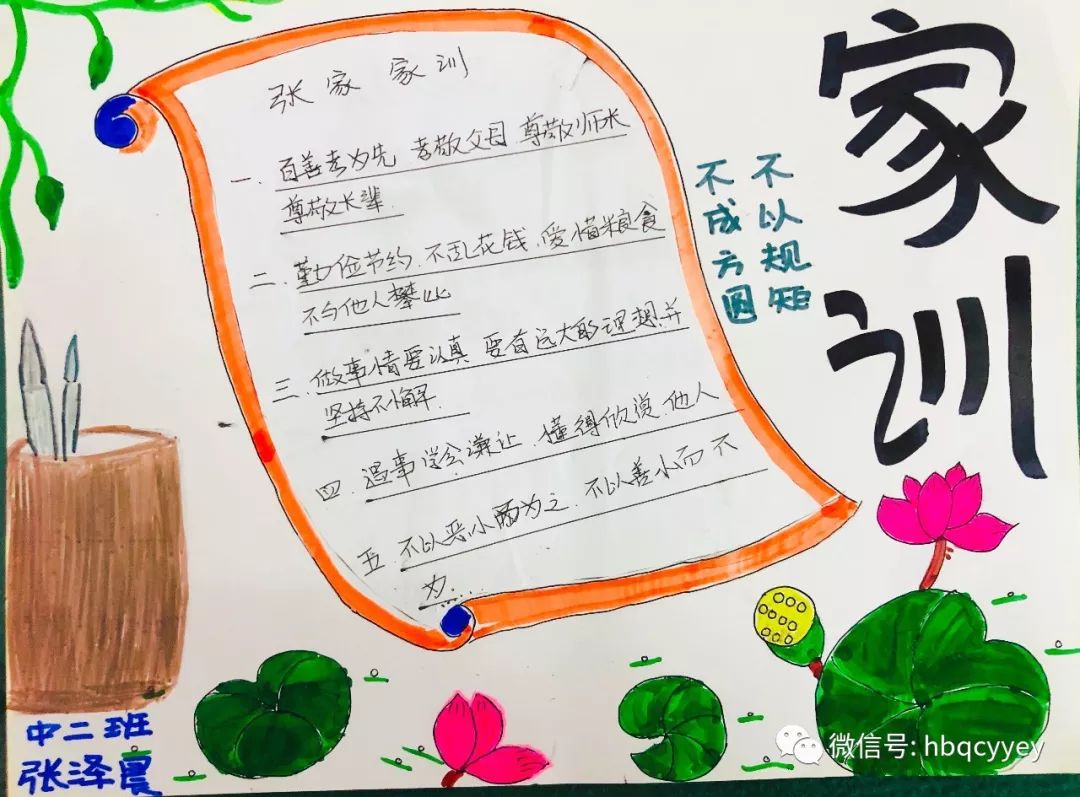 家训
不以规矩
不成方圆
张家 家训
一. 百善孝为先 孝敬父母 尊敬师长
尊敬长辈.
二. 勤俭节约. 不乱花钱. 爱惜粮食
不与他人攀比
三. 做事情要认真 要有远大的理想并
坚持不懈.
四. 遇事学会谦让. 懂得欣赏他人
五. 不以恶小而为之. 不以善小而不
为.....
中二班
张泽晨
微信号: hbqcyyey